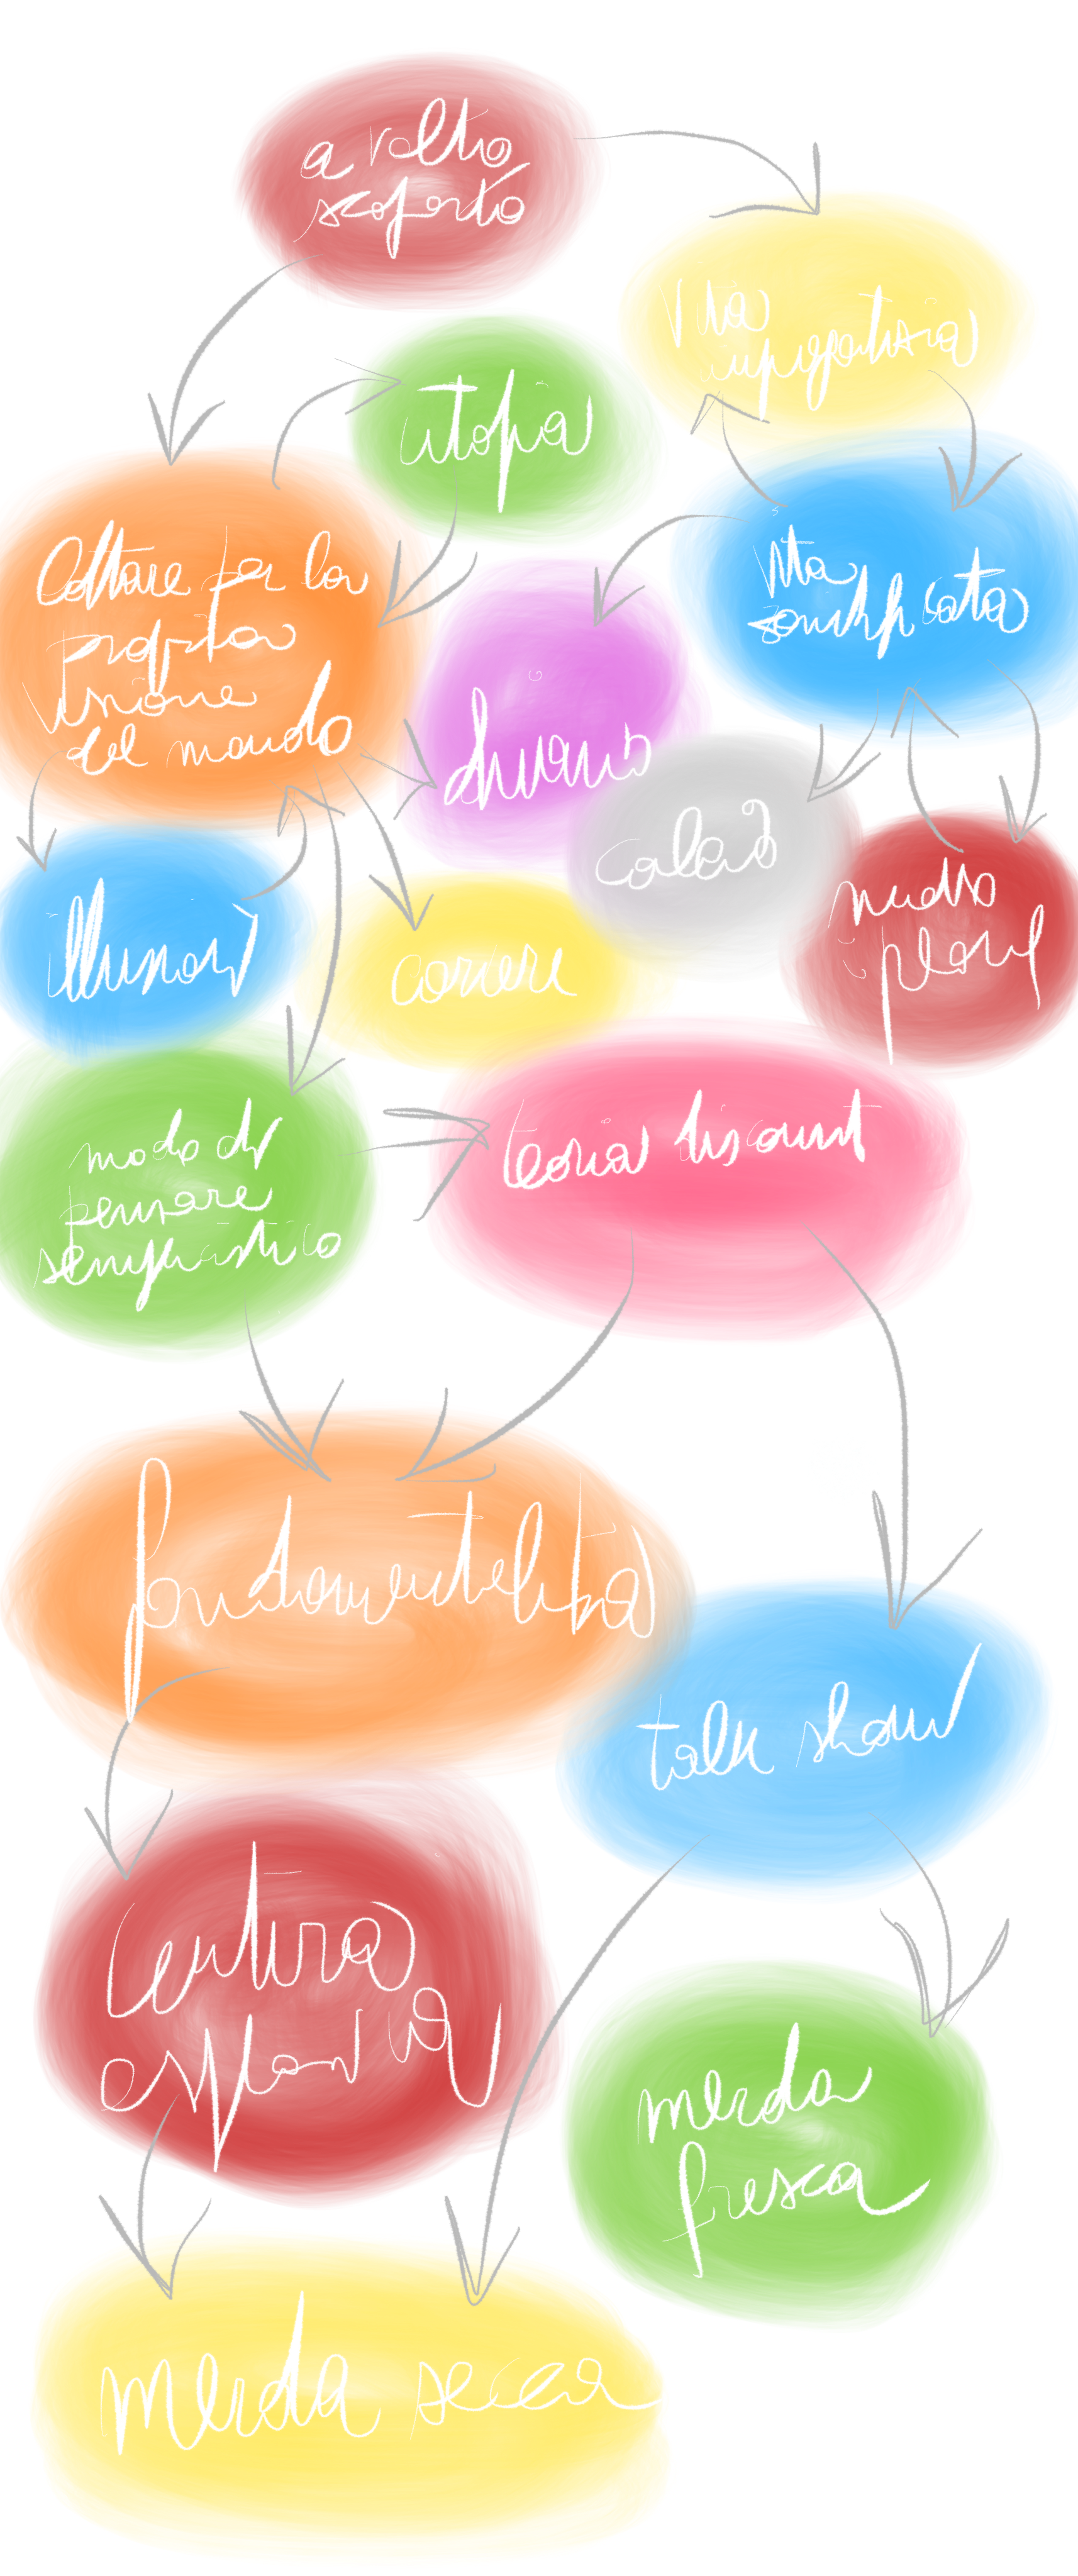 a volto
scoperto
vita
utopia
vita
lottare per la
propria
visione
del mondo
divano
calcio
illusioni
correre
modo di
pensare
semplicistico
teoria discount
fondamentalista
talk show
centra
merda
fresca
merda secca